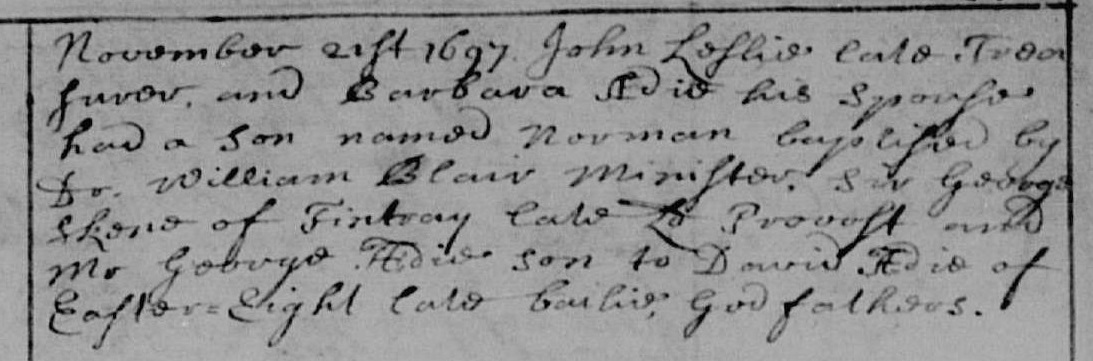 November 21st 1697. John Leslie late Trea
surer, and Barbara Ædie his spouse
had a son named Norman baptised by
Dr. William Blair Minister. Sir George
Skene of Fintray late Ld Provost and
Mr George Ædie son to David Ædie of
Easter=Eight late bailie, Godfathers.